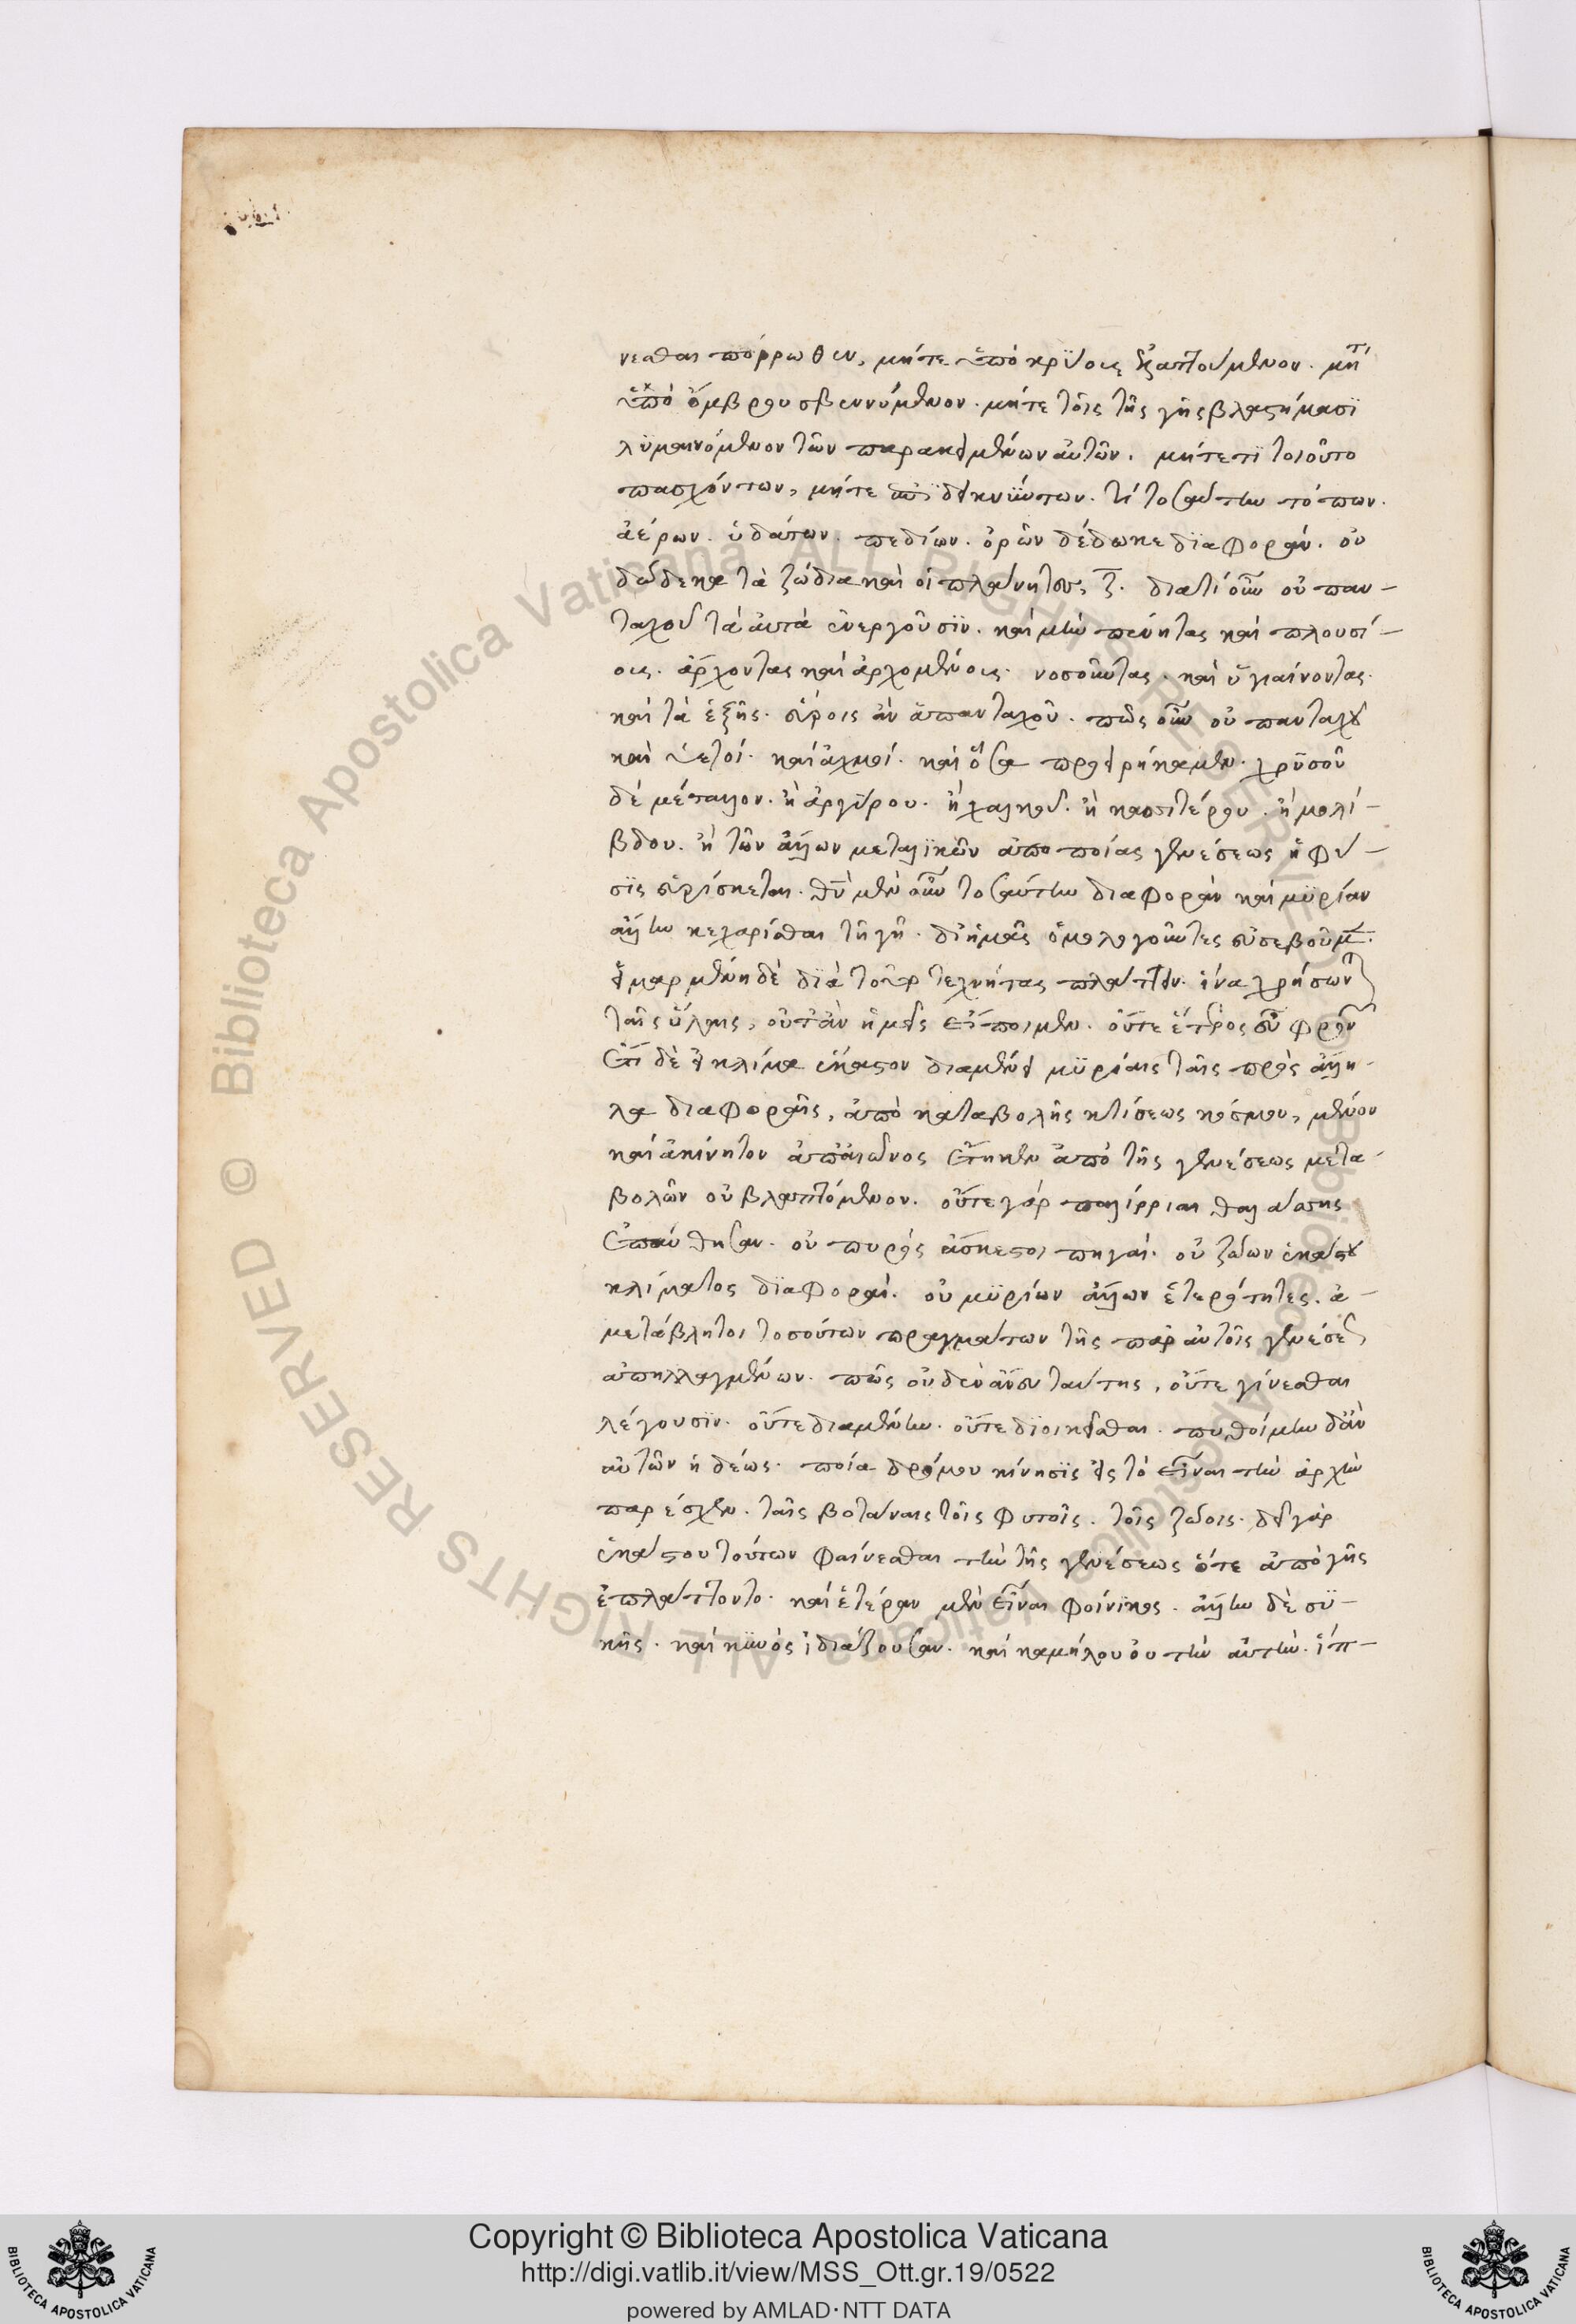 νεσθαι πόρρωθεν, μήτε ὑπὸ κρύους ἐξαπτούμενον. μήτ
ὑπὸ ὄμβρου σβεννύμενον. μήτε τοῖς τῆς γῆς βλαστήμασϊ
λϋμαινόμενον τῶν παρακειμένων αὐτῶν. μήτε τϊ τοιοῦτο
πασχόντων, μήτε δεικνϋντων. τί τοσαύτην τόπων.
ἀέρων. ὑδάτων. πεδίων. ὀρῶν δέδωκε δϊαφοράν. οὐ
δώδεκα τὰ ζώδια καὶ οἱ πλανήτους ζ. διατί οὖν οὐ παν-
ταχοῦ τὰ αὐτὰ ἐνεργοῦσϊν. καὶ μὴν πένητας καὶ πλουσί-
ους. ἄρχοντας καὶ ἀρχομένους. νοσοῦντας. καὶ ὑγιαίνοντας.
καὶ τὰ ἑξῆς. εὕροις ἂν ἁπανταχοῦ. πῶς οὖν οὐ πανταχοῦ
καὶ ὑετοί. καὶ αὐχμοί. καὶ ὅσα προειρήκαμεν. χρϋσοῦ
δὲ μέταλλον. ἢ ἀργύρου. ἢ χαλκοῦ. ἢ κασσιτέρου. ἢ μολί-
βδου. ἢ τῶν ἄλλων μεταλλϊκῶν ἀπο ποίας γενέσεως ἡ φύ-
σϊς εὑρίσκεται. θν μὲν οὖν τοσαύτην διαφορὰν καὶ μϋρίαν
ἄλλην κεχαρίσθαι τῇ γῇ. δι ἡμᾶς ὁμολογοῦντες εὐσεβοῦμεν.
εἱμαρμένη δὲ δϊὰ τοὺς τεχνήτας πλάττειν. ἵνα χρήσωνται
ταῖς ὕλαις, οὔτ ἂν ἡμεῖς εἴποιμεν. οὔτε ἕτερος εὖ φρονῶν
ἔτι δὲ εἰ κλίμα ἕκαστον διαμένει μϋρίαις ταῖς πρὸς ἄλλη-
λα διαφοραῖς, ἀπὸ καταβολῆς κτίσεως κόσμου, μένον
καὶ ἀκίνητον ἀπ αἰῶνος ἕστηκεν ἀπὸ τῆς γενέσεως μετα-
βολῶν οὐ βλαπτόμενον. οὔτε γὰρ παλίρριαι θαλάσσης
ἐπαύθησαν. οὐ πυρὸς ἄσβεστοι πηγαί. οὐ ζώων ἑκάστου
κλίματος δϊαφοραί. οὐ μϋρίων ἄλλων ἑτερότητες. ἀ-
μετάβλητοι τοσούτων πραγμάτων τῆς παρ αὐτοῖς γενέσεως
ἀπηλλαγμένων. πῶς οὐδὲν ἄνευ ταύτης, οὔτε γίνεσθαι
λέγουσϊν. οὔτε διαμένειν. οὔτε δϊοικεῖσθαι. πυθοίμην δ ἂν
αὐτῶν ἡδέως. ποία δρόμου κίνησϊς εἰς τὸ εἶναι τὴν ἀρχὴν
παρέσχεν. ταῖς βοτάναις τοῖς φυτοῖς. τοῖς ζώοις. δεῖ γὰρ
ἑκάστου τούτων φαίνεσθαι τὴν τῆς γενέσεως ὅτε ἀπὸ γῆς
ἐπλάττοντο. καὶ ἑτέραν μὲν εἶναι φοίνϊκος. ἄλλην δὲ σϋ-
κῆς. καὶ κϋνὸς ἰδιάζουσαν. καὶ καμήλου οὐ τὴν αὐτήν. ἵπ-
Copyright © Biblioteca Apostolica Vaticana
http://digi.vatlib.it/view/MSS_Ott.gr.19/0522
powered by AMLAD·NTT DATA